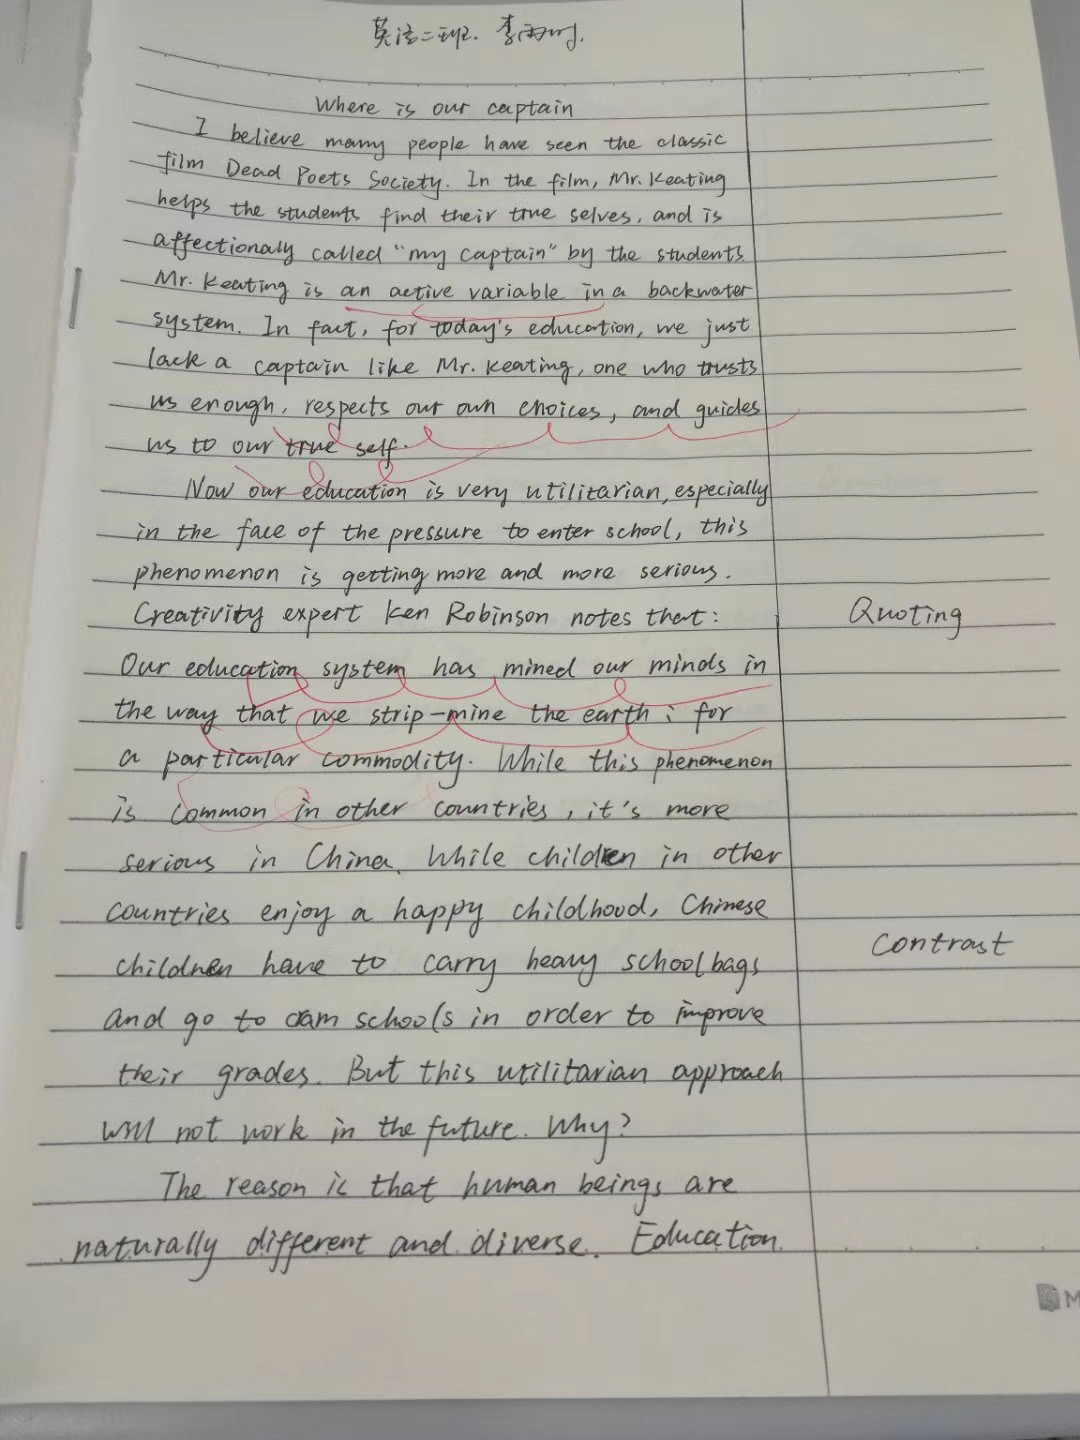 英语二班. 李雨时.
Where is our captain
I believe many people have seen the classic
film Dead Poets Society. In the film, Mr. Keating
helps the students find their true selves, and is
affectionaly called "my captain" by the students
Mr. Keating is an active variable in a backwater
system. In fact, for today's education, we just
lack a captain like Mr. Keating, one who trusts
us enough, respects our own choices, and guides
us to our true self.
Now our education is very utilitarian, especially
in the face of the pressure to enter school, this
phenomenon is getting more and more serious.
Creativity expert Ken Robinson notes that:
Quoting
Our education system has mined our minds in
the way that we strip-mine the earth: for
a particular commodity. While this phenomenon
is common in other countries, it's more
serious in China. While children in other
countries enjoy a happy childhood, Chinese
Contrast
children have to carry heavy schoolbags
and go to cram schools in order to improve
their grades. But this utilitarian approach
will not work in the future. Why?
The reason is that human beings are
naturally different and diverse. Education
M